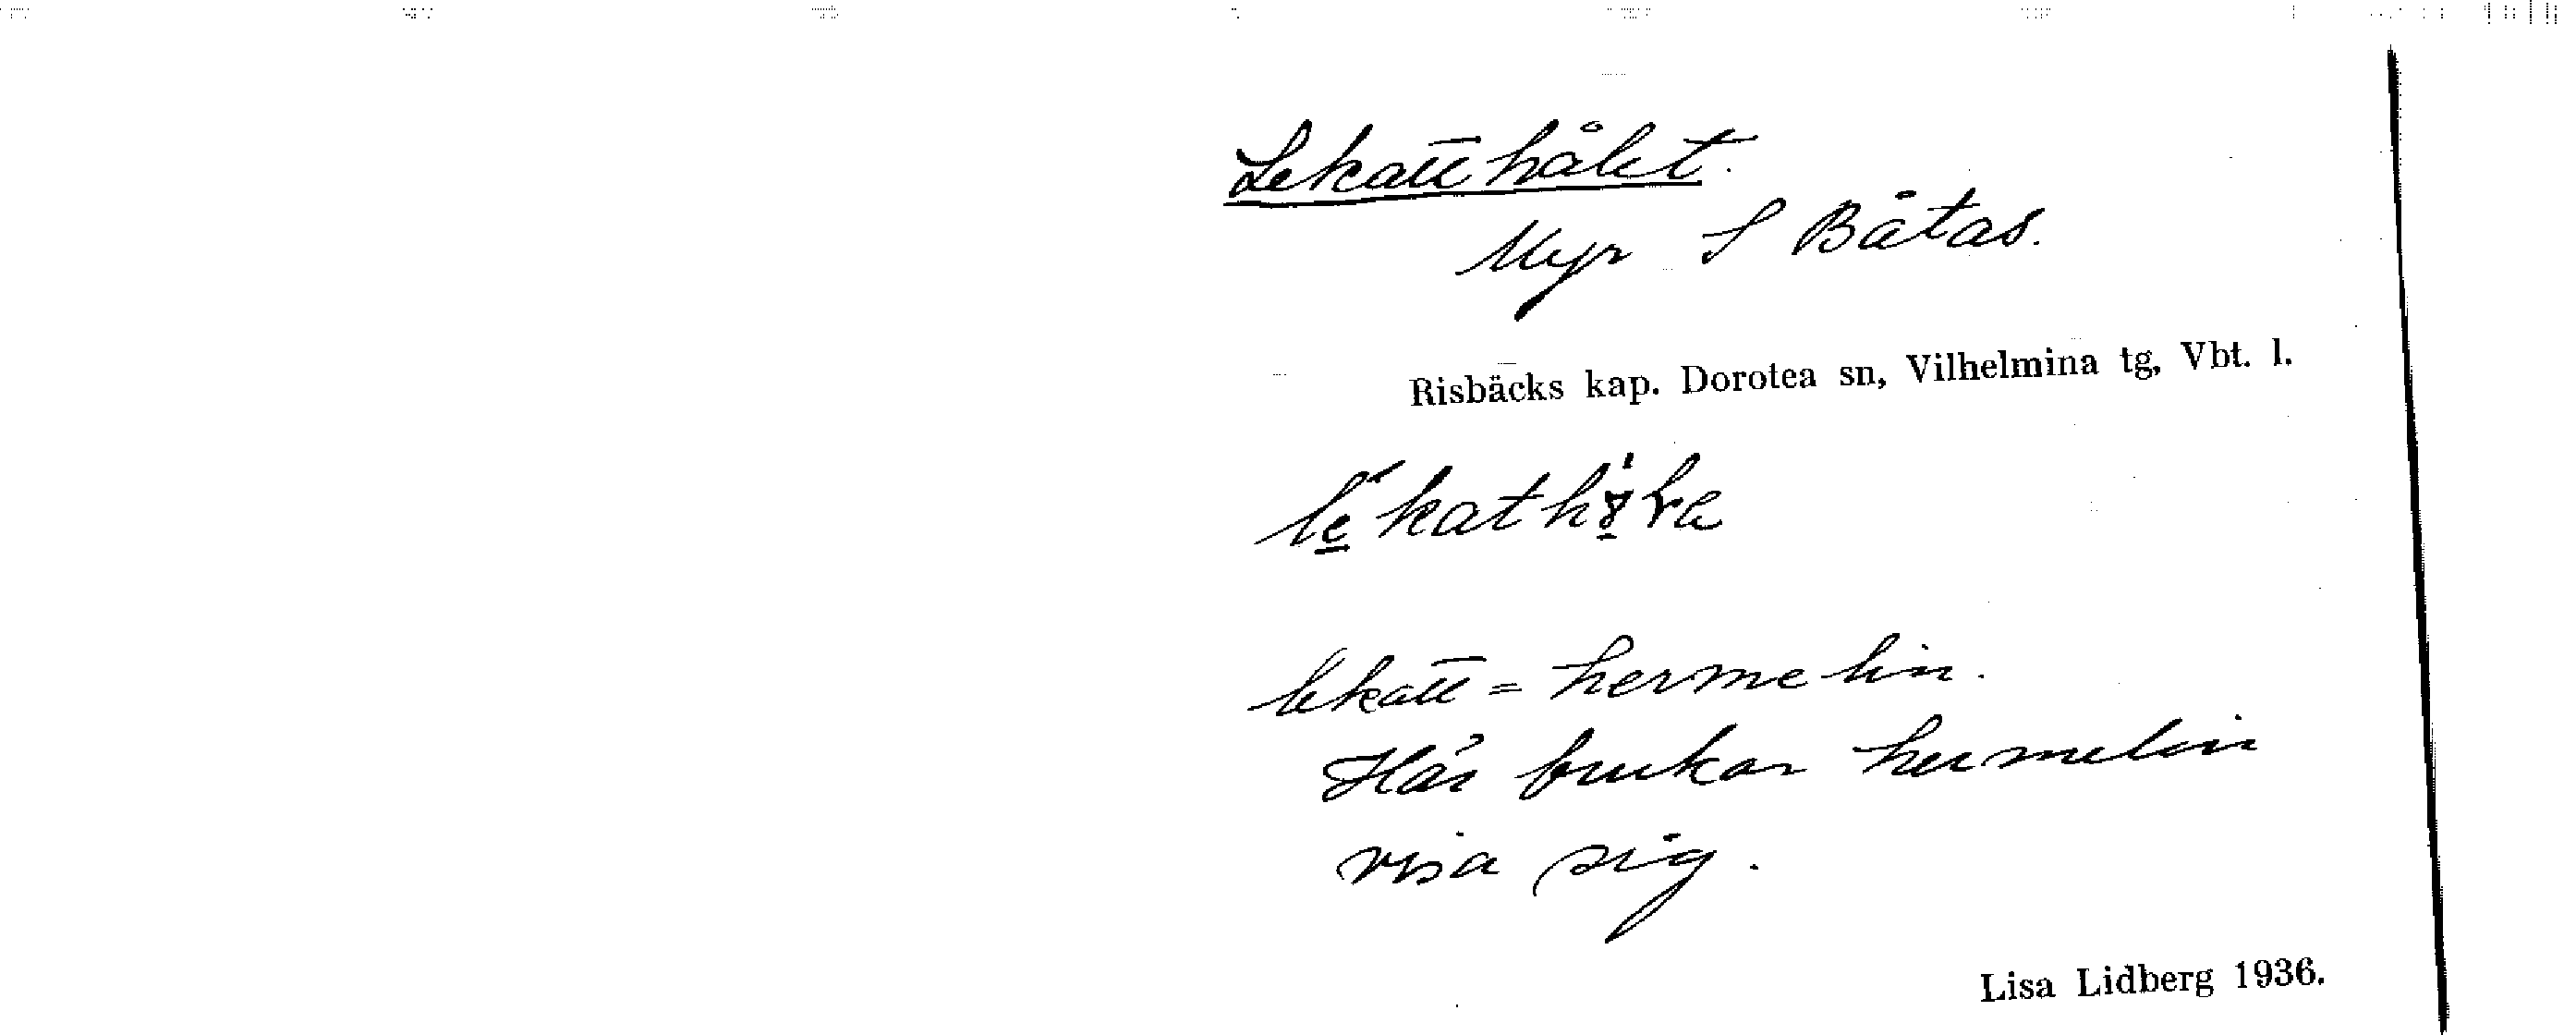 Lekatthålet.
Myr S Båtas.
Risbäcks kap. Dorotea sn, Vilhelmina tg, Vbt. l.
lekatt = hermelin.
Här brukar hermelin
visa sig.
Lisa Lidberg 1936.